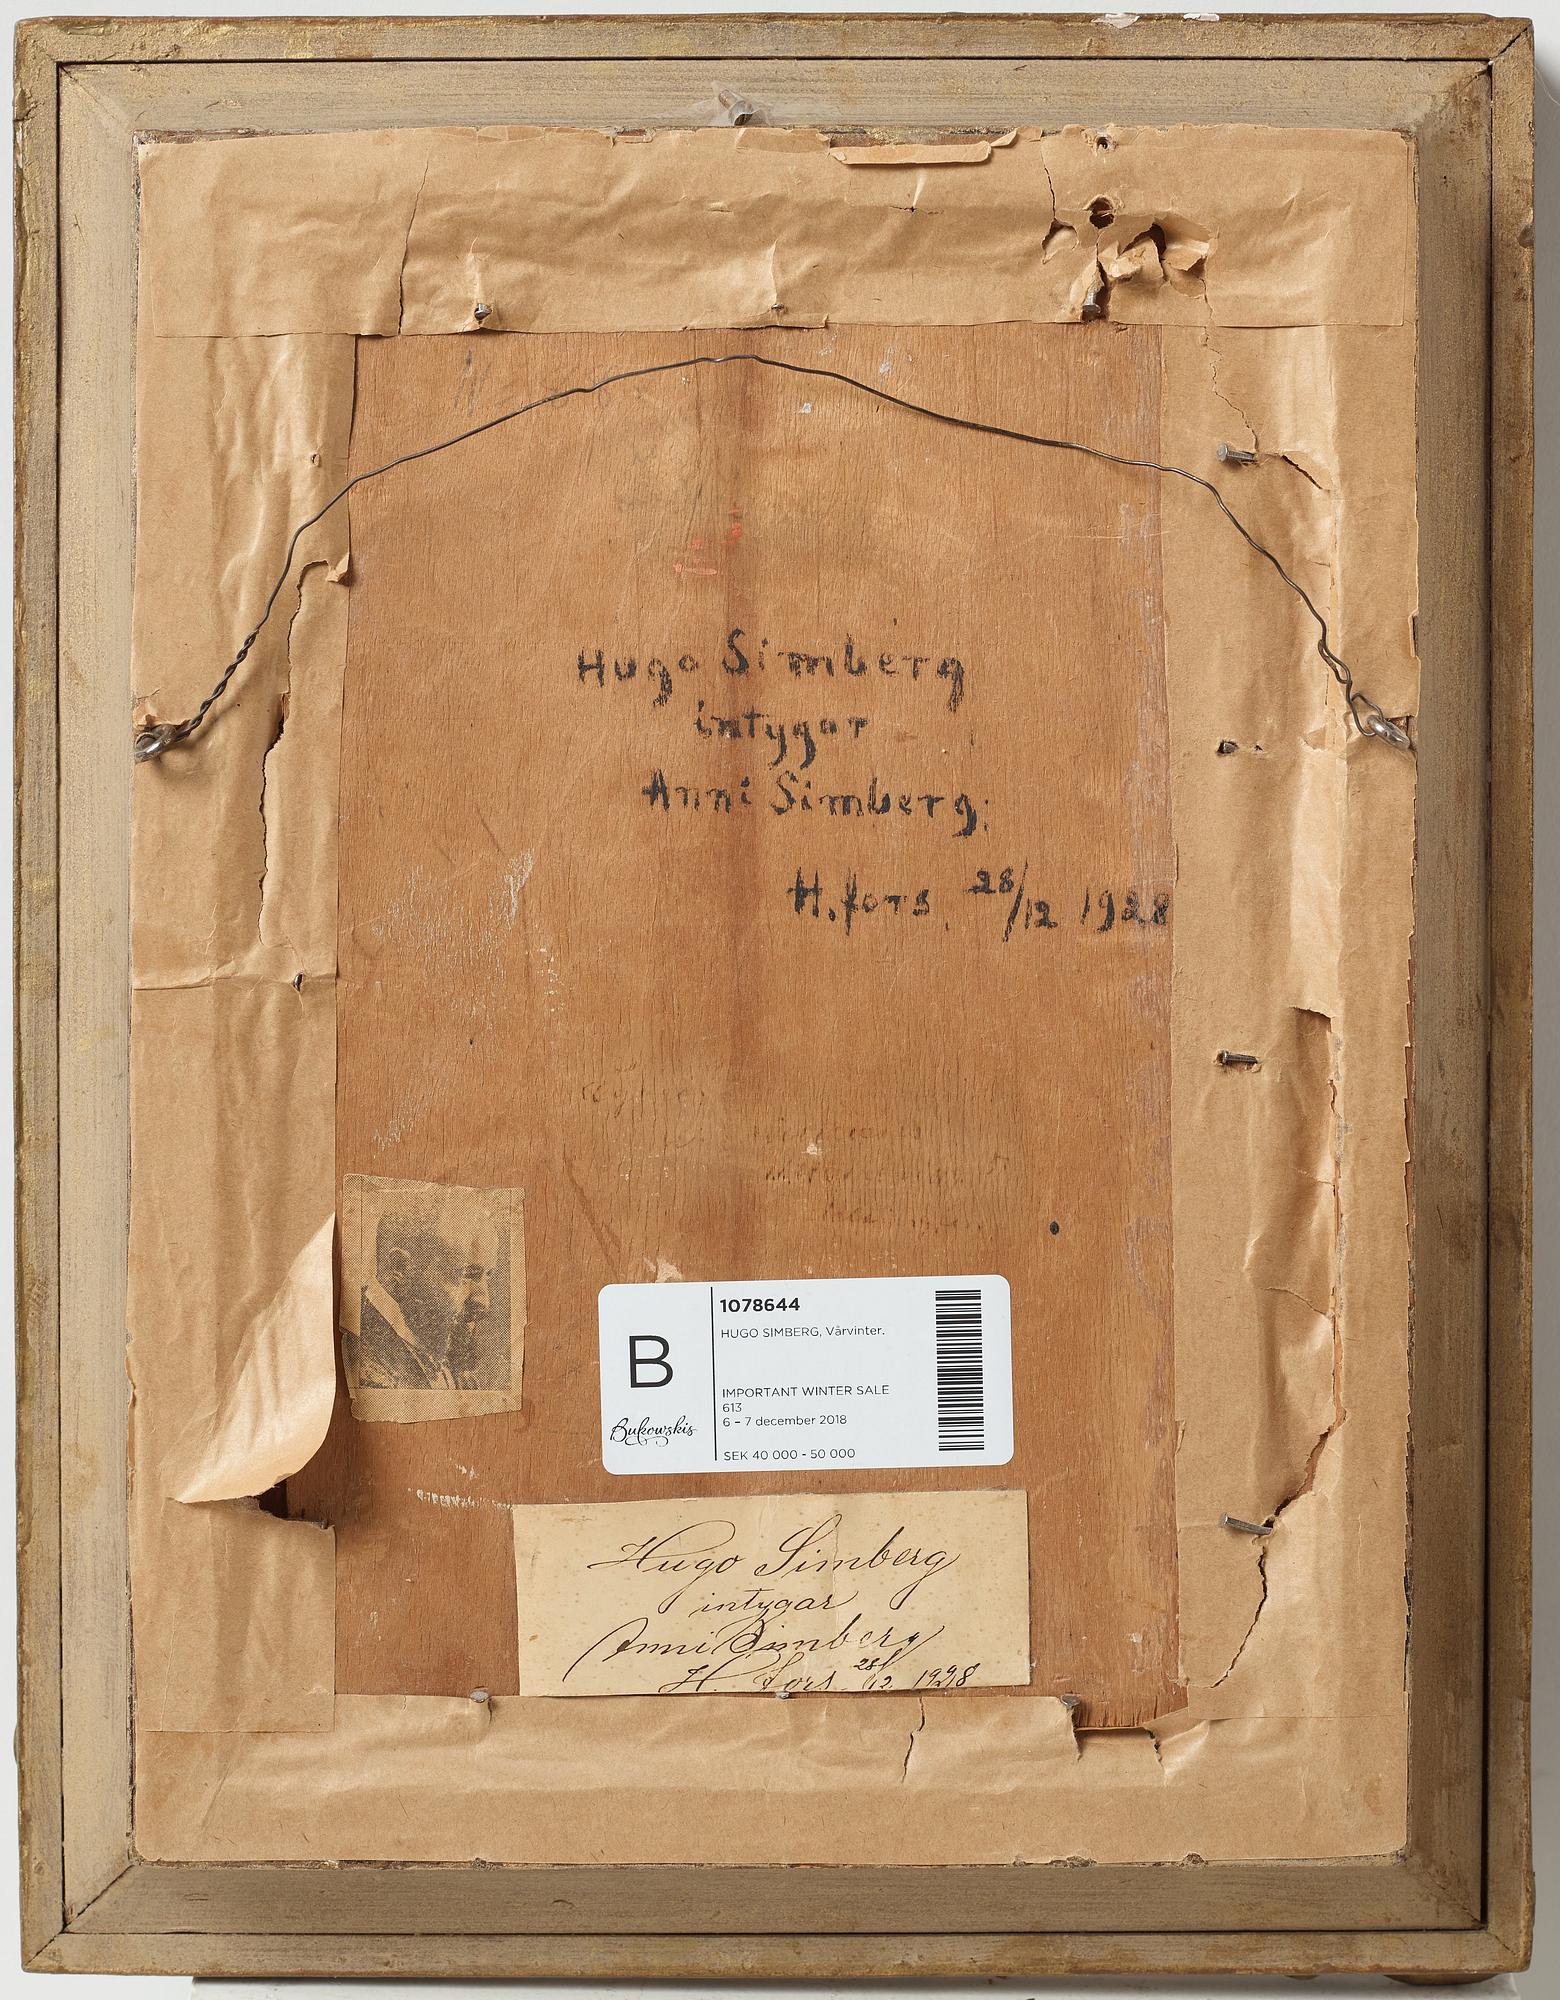 Hugo Simberg
intygar
Anni Simberg.
H.fors. 28/12 1928
B
Bukowskis
1078644
HUGO SIMBERG, Vårvinter.
IMPORTANT WINTER SALE
613
6 – 7 december 2018
SEK 40 000 - 50 000
Hugo Simberg
intygar
Anni Simberg
H. fors 28/12 1928